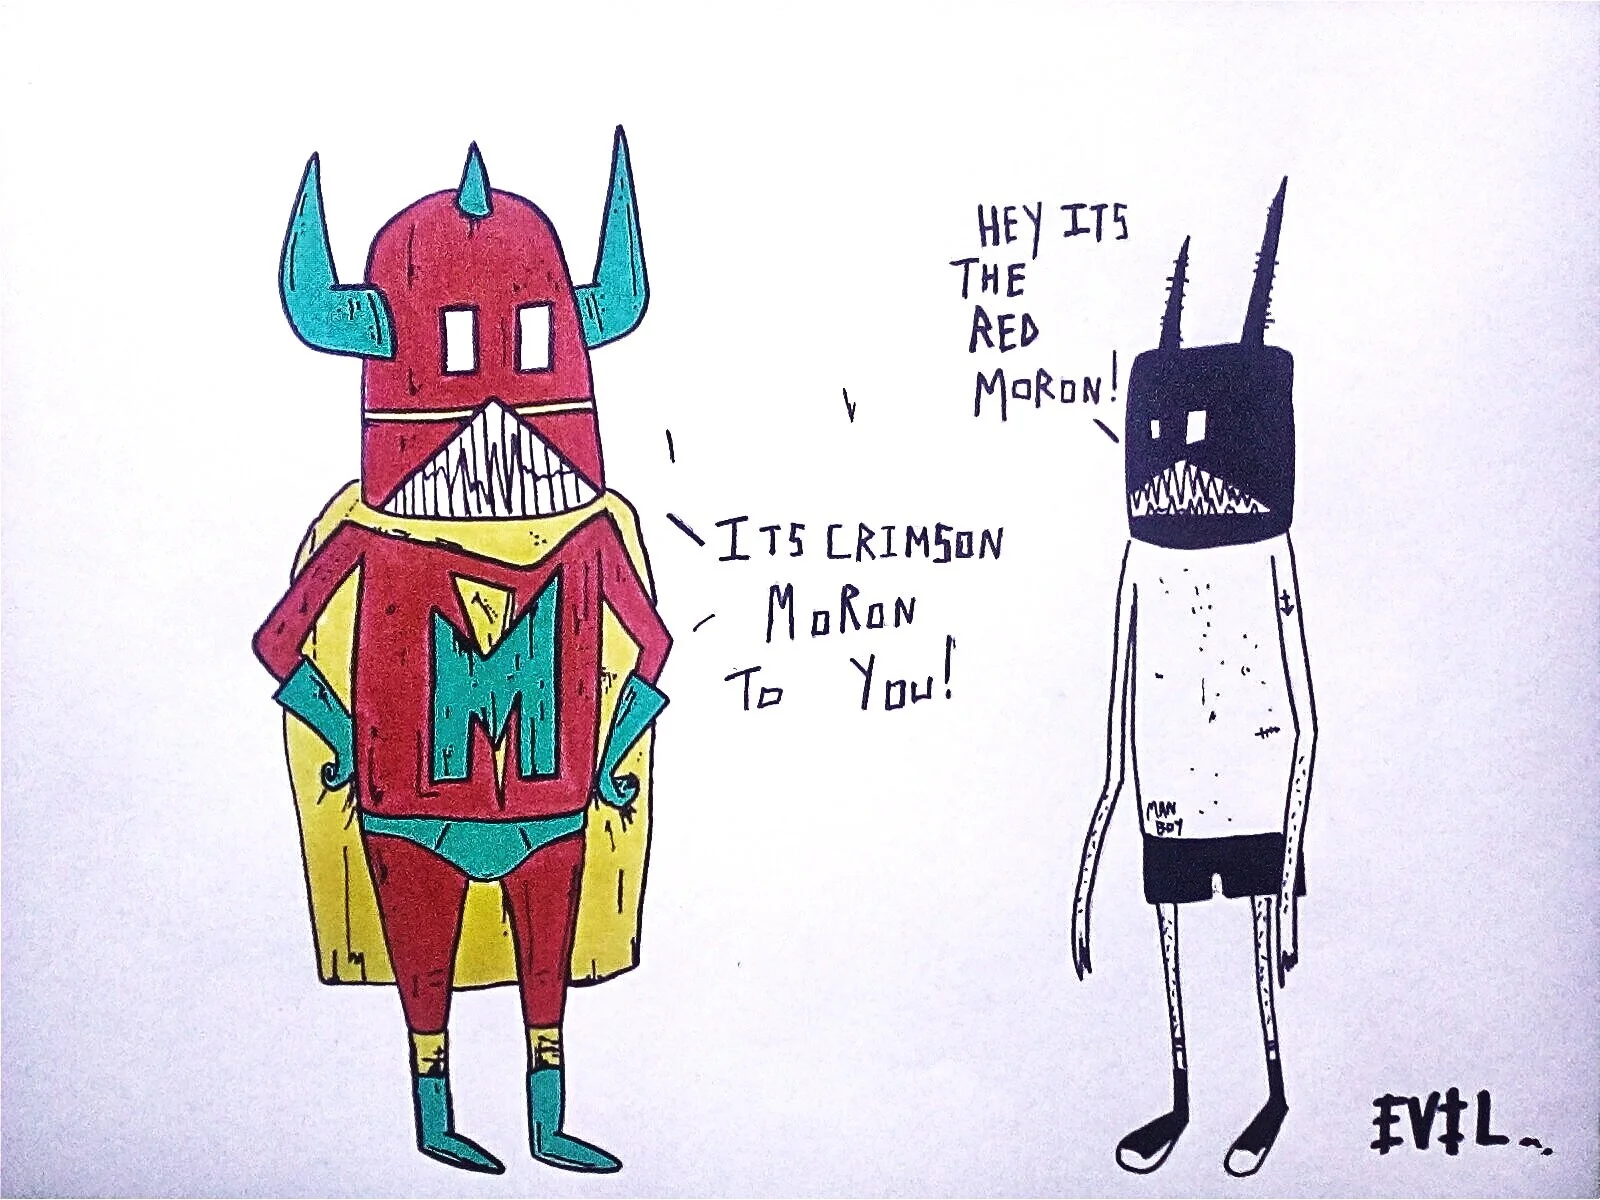 HEY ITS
THE
RED
MORON!
ITS CRIMSON
MORON
TO YOU!
M
MAN
BOY
EVIL